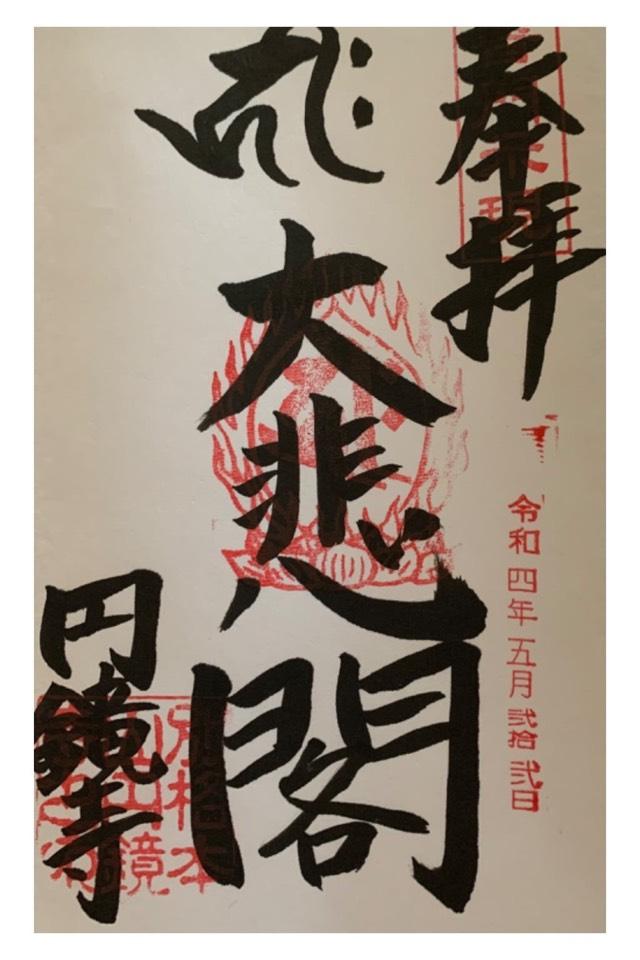 奉拝
令和四年五月弐拾弐日
大悲閣
円鏡寺